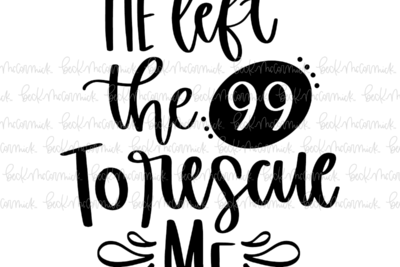 HE left
the 99
To rescue
ME